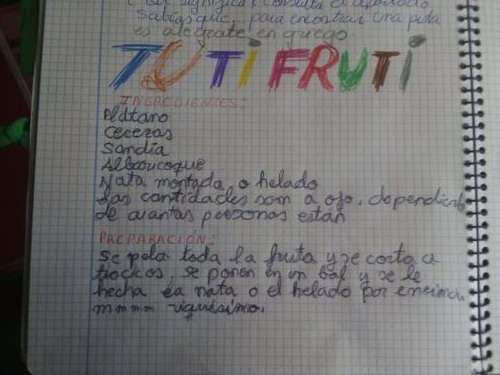 significa? consulta el apartado
sabías que, para encontrar una pista
es alegrate en griego
TUTI FRUTI
INGREDIENTES:
Plátano
Cerezas
Sandía
Albaricoque
Nata montada o helado
Las cantidades son a ojo, dependiendo
de cuantas personas están
PREPARACIÓN:
Se pela toda la fruta y se corta a
trocicos, se ponen en un bol y se le
hecha la nata o el helado por encima.
mmmm riquísimo.